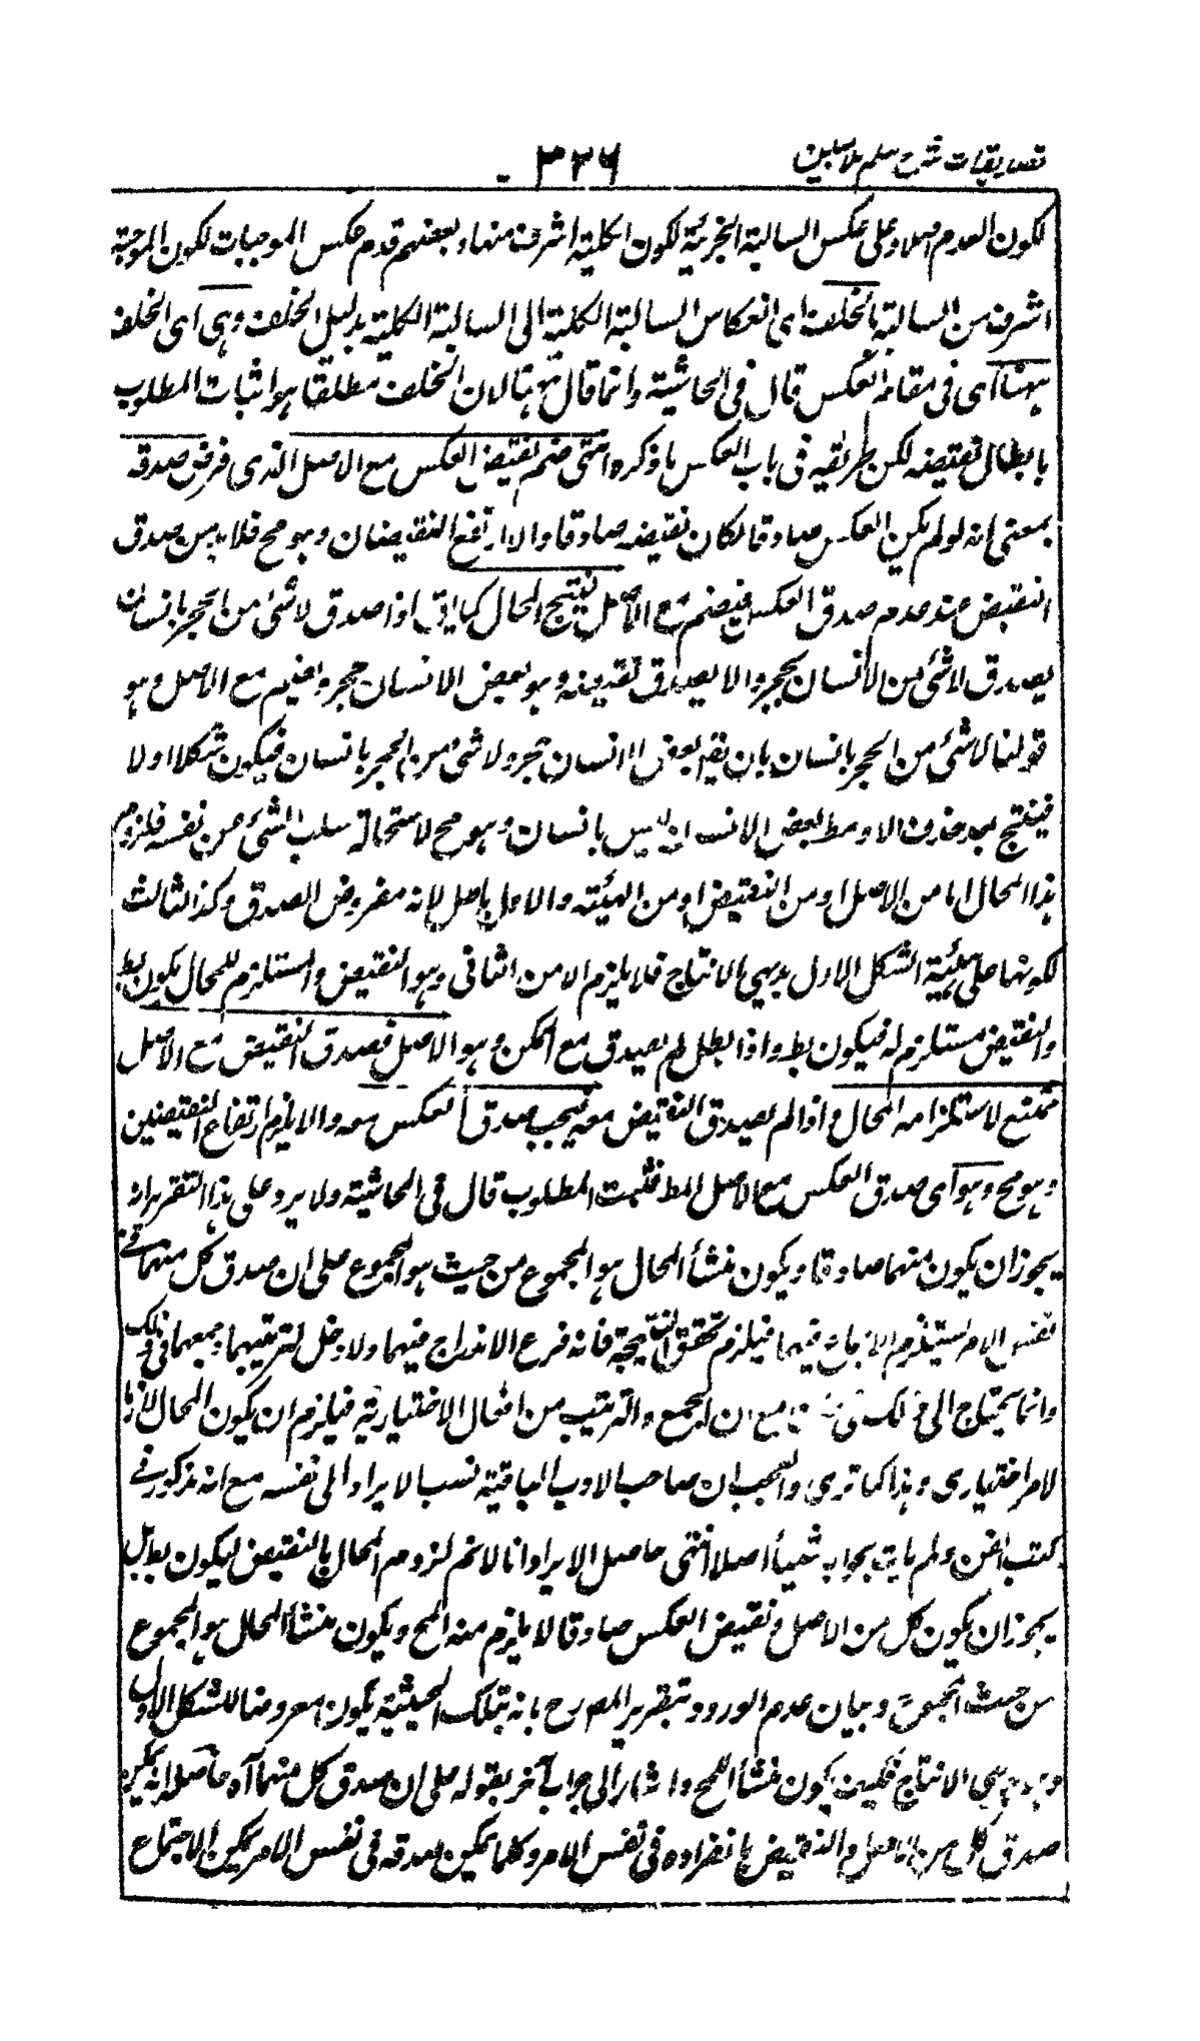 تصدیقات شرح سلم ملا مبین ٣٢٦
لكون العدم اصلا وعلى عكس السالبة الجزئية لكون الكلية اشرف منها وبعضهم قدم عكس الموجبات لكون الموجبة
اشرف من السالبة بالخلف اى انعكاس السالبة الكلية الى السالبة الكلية بدليل الخلف وهى اى الخلف
ههنا اى فى مقام العكس قال فى الحاشية وانما قال ههنا لان الخلف مطلقا هو اثبات المطلوب
بابطال نقيضه لكن طريقه فى باب العكس ما ذكره انتهى ضم نقيض العكس مع الاصل الذى فرض صدقه
بمعنى انه لو لم يكن العكس صادقا لكان نقيضه صادقا والا ارتفع النقيضان وهو مح فلابد من صدق
النقيض عند عدم صدق العكس فيضم مع الاصل لينتج المحال كما يق اذا صدق لا شئ من الحجر بانسان
يصدق لا شئ من الانسان بحجر والا يصدق نقيضه وهو بعض الانسان حجر وانضم مع الاصل وهو
قولنا لا شئ من الحجر بانسان بان يقر بعض الانسان حجر ولا شئ من الحجر بانسان فيكون شكلا اولا
فينتج بعد حذف الاوسط بعض الانسان ليس بانسان وهو مح لاستحالة سلب الشئ عن نفسه فلزوم
هذا المحال اما من الاصل او من النقيض او من الهيئة والاول باطل لانه مفروض الصدق وكذا الثالث
لكونها على هيئة الشكل الاول بديهى الانتاج فلا يلزم الا من الثانى وهو النقيض والمستلزم للمحال يكون بط
والنقيض مستلزم له فيكون بط واذا بطل لم يصدق مع الممكن وهو الاصل فصدق النقيض مع الاصل
ممتنع لاستلزامه المحال واذا لم يصدق النقيض معه فيجب صدق العكس معه والا يلزم ارتفاع النقيضين
وهو مح وهو اى صدق العكس مع الاصل المط فثبت المطلوب قال فى الحاشية ولا يرد على هذا التقرير انه
يجوز ان يكون منهما صادقا ويكون منشأ المحال هو المجموع من حيث هو المجموع على ان صدق كل منهما فى
نفس الامر يستلزم الاجتماع فيهما فيلزم تحقق النتيجة فانه فرع الاندراج فيهما ولا دخل لترتيبهما وجمعهما فى ذلك
وانما يحتاج الى ذلك مع ان الجمع والترتيب من افعال الاختيارية فيلزم ان يكون المحال لازما
لامر اختيارى وهذا كما ترى والعجب ان صاحب الاداب الباقية نسب الايراد الى نفسه مع انه مذكور فى
كتب الفن ولم يات بجوابه شيئا اصلا انتهى حاصل الايراد انا لا نم لزوم المحال بالنقيض ليكون بط بل
يجوز ان يكون كل من الاصل ونقيض العكس صادقا لا يلزم منه المح ويكون منشأ المحال هو المجموع
من حيث المجموع وبيان عدم الورود بتقرير المص رح بانه بتلك الحيثية يكون معروضا للشكل الاول
وهو بديهى الانتاج فكيف يكون منشأ للمح واشار الى جواب آخر بقوله على ان صدق كل منهما آه حاصله انه يمكن
صدق كل من الاصل والنقيض بانفراده فى نفس الامر وكلما يمكن صدقه فى نفس الامر يمكن الاجتماع